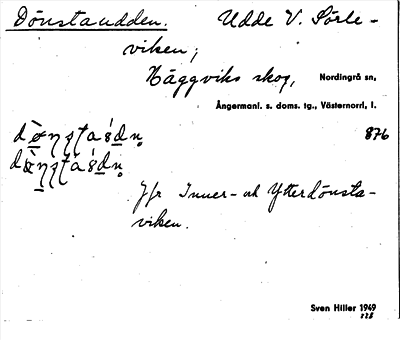 Dönstaudden. Udde V. Sörle-
viken;
Häggviks skog, Nordingrå sn,
Ångermanl. s. doms. tg., Västernorrl. l.
876
Jfr Inner- och Ytterdönsta-
viken.
Sven Hiller 1949